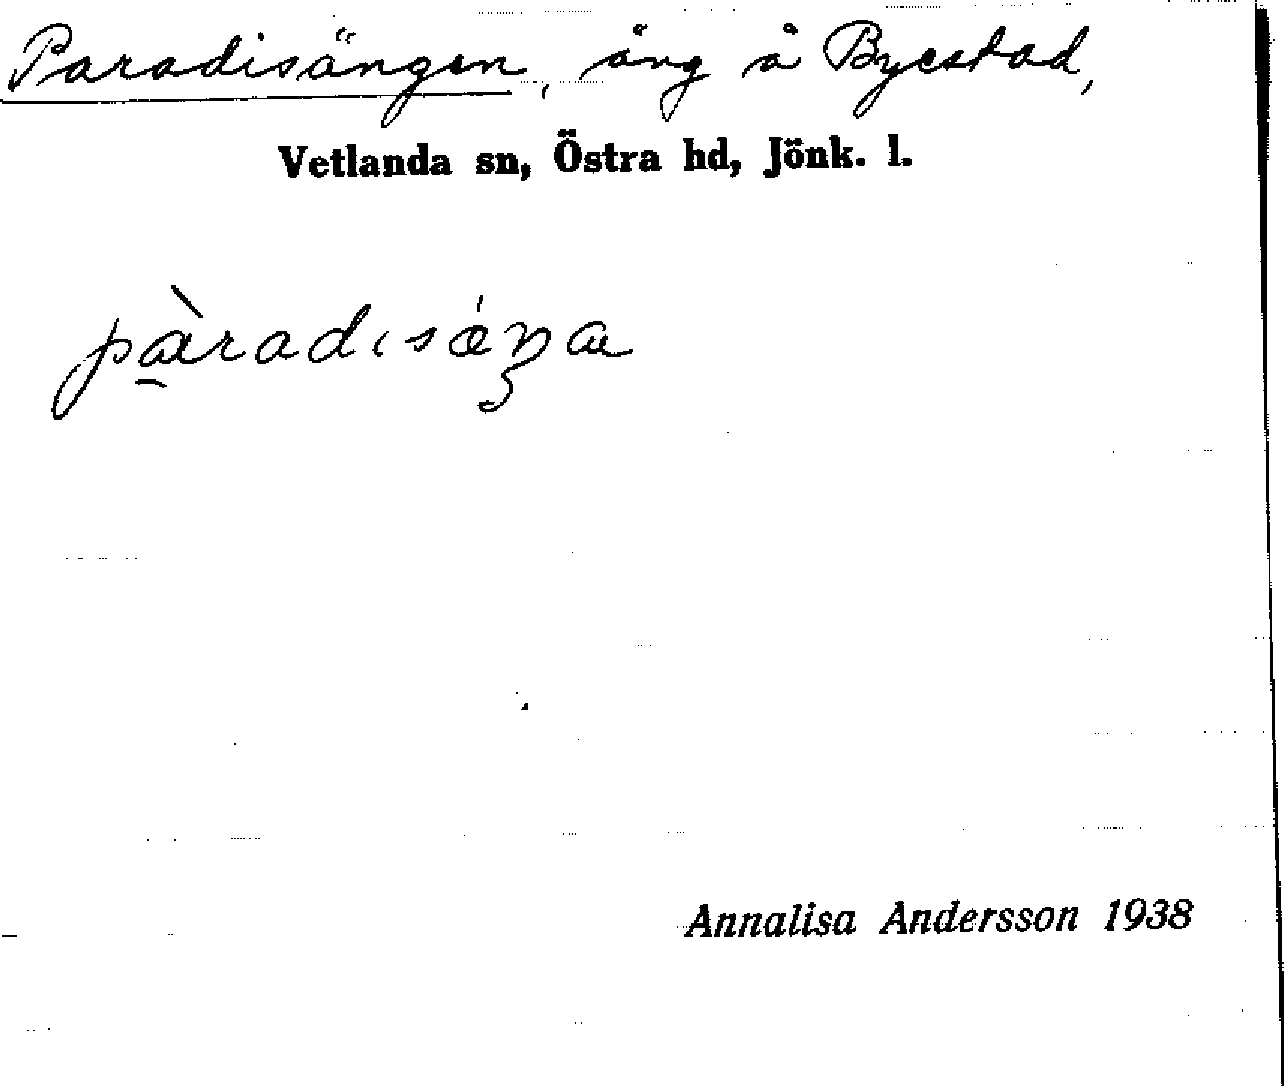 Paradisängen, äng å Byestad,
Vetlanda sn, Östra hd, Jönk. l.
pàradısǽŋa
Annalisa Andersson 1938